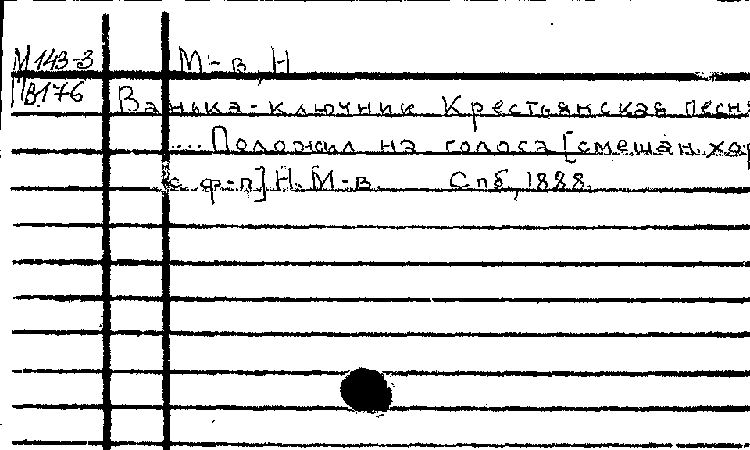 М 143-3
М-в, Н
МВ176
Ванька-ключник Крестьянская песня
... Положил на голоса [смешан. хор
с ф-п] Н. М-в. Спб, 1888.